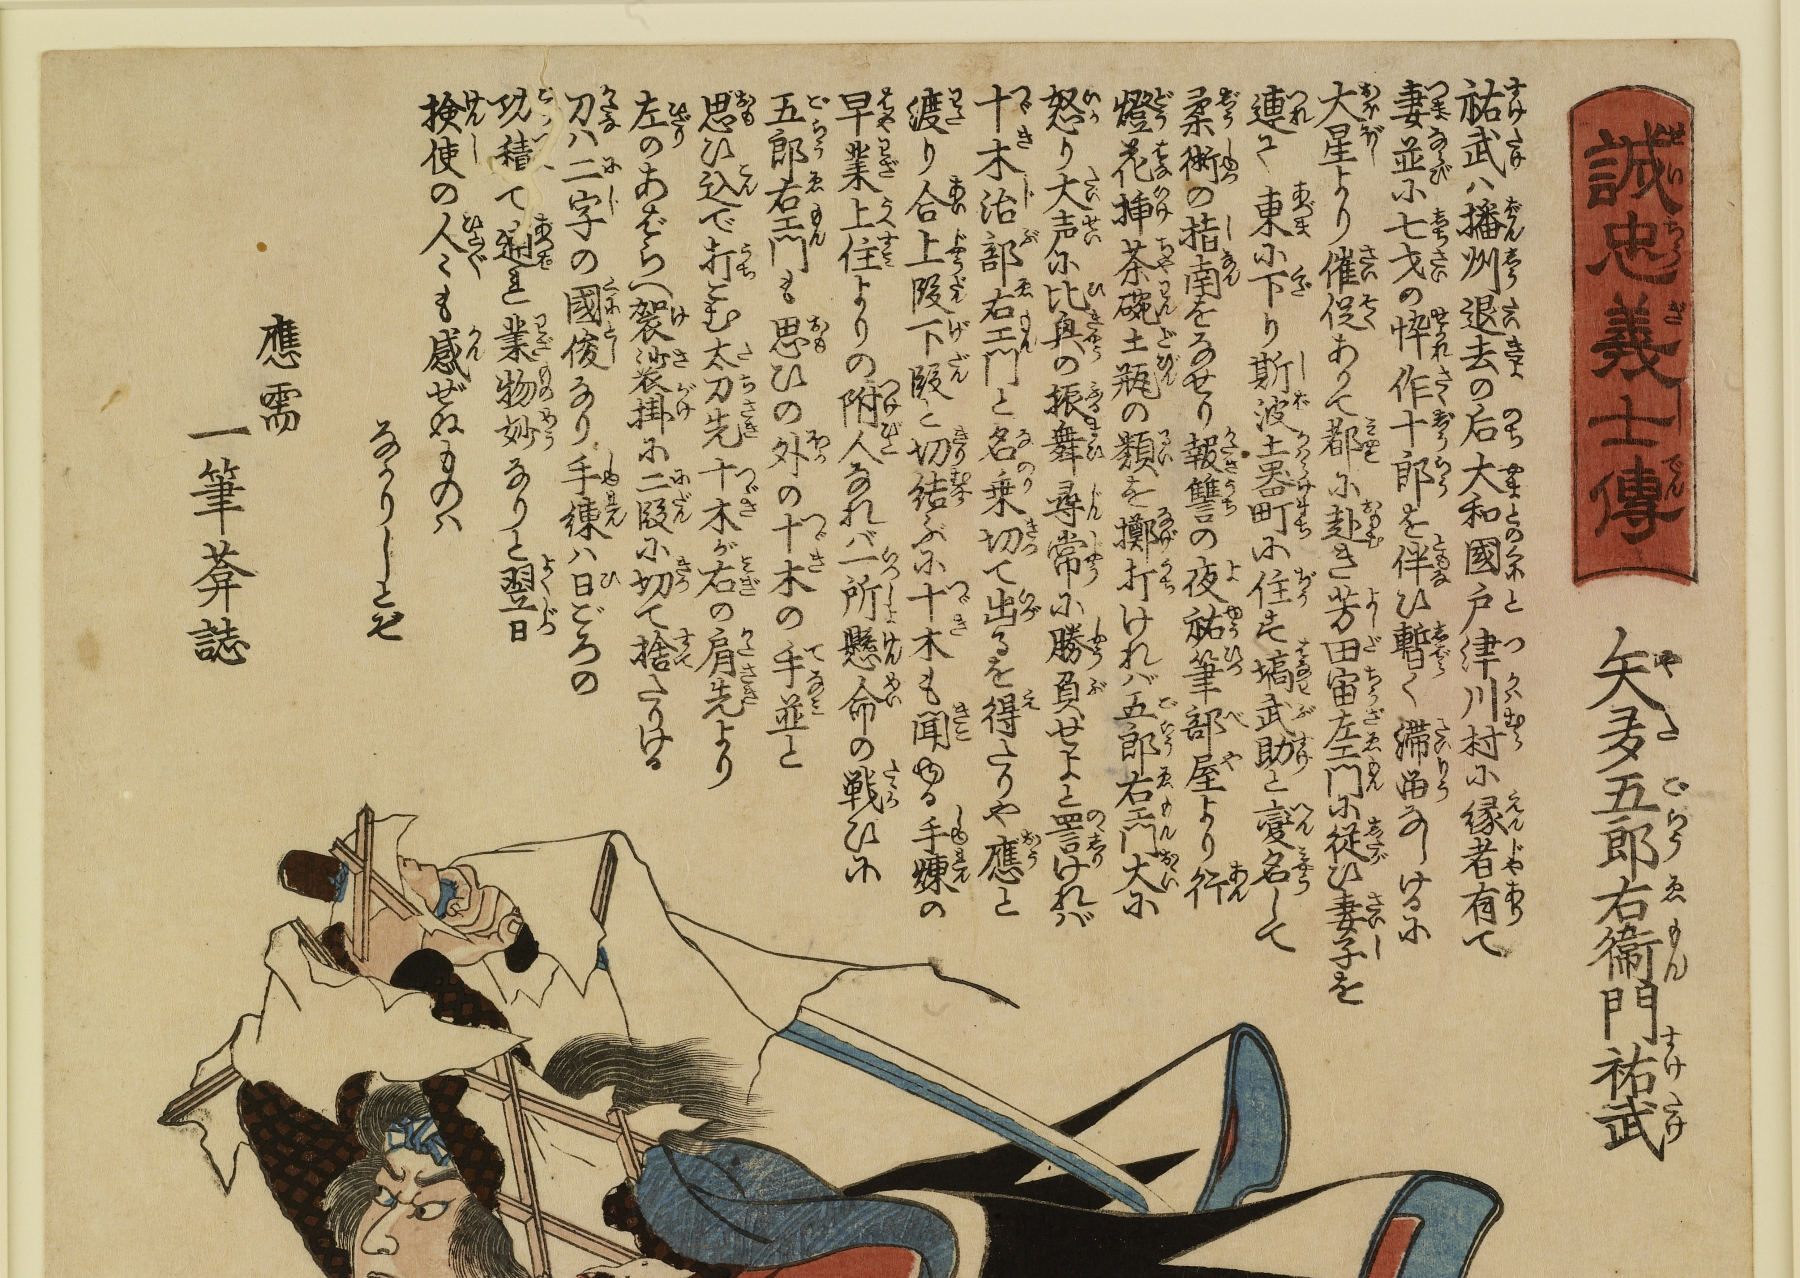 誠忠義士傳
矢多五郎右衛門祐武
祐武ハ播州退去の后大和國戸津川村に縁者有て
妻並に七才の悴作十郎を伴ひ暫く滞留なしけるに
大星より催促ありて都に赴き芳田宙左エ門に従ひ妻子を
連て東に下り斯波土器町に住す塙武助と変名して
柔術の指南をなせり報讐の夜祐筆部屋より行
燈花挿茶碗土瓶の類を擲打けれバ五郎右エ門大に
怒り大声に比興の振舞尋常に勝負せよと詈けれバ
十木治部右エ門と名乗切て出るを得たりや應と
渡り合上段下段と切結ぶに十木も聞ゆる手煉の
早業上住よりの附人なれバ一所懸命の戦ひに
五郎右エ門も思ひの外の十木の手並と
思ひ込で打こむ太刀先十木が右の肩先より
左のあばらへ袈裟掛に二段に切て捨たりける
刀ハ二字の國俊なり手練ハ日ごろの
功積て遖れ業物妙なりと翌日
検使の人々も感ぜぬものハ
なかりしとぞ
應需
一筆葊誌